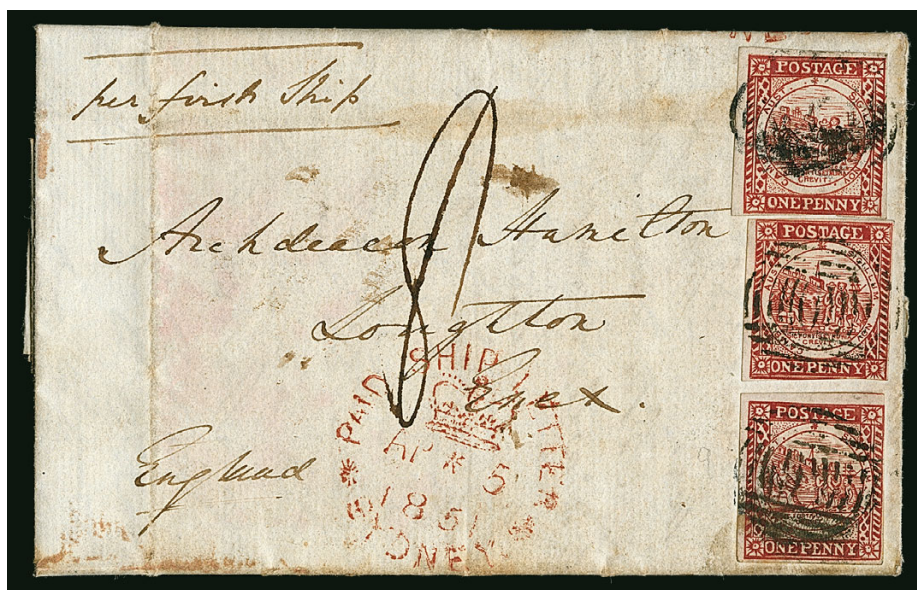 per first Ship
8
Archdeacon Hamilton
Loughton
Essex.
England
PAID SHIP LETTER
AP * 5
1851
SYDNEY
POSTAGE
SIGILLUM
CREVIT
ONE PENNY
POSTAGE
SIGILLUM
CREVIT
ONE PENNY
POSTAGE
ONE PENNY